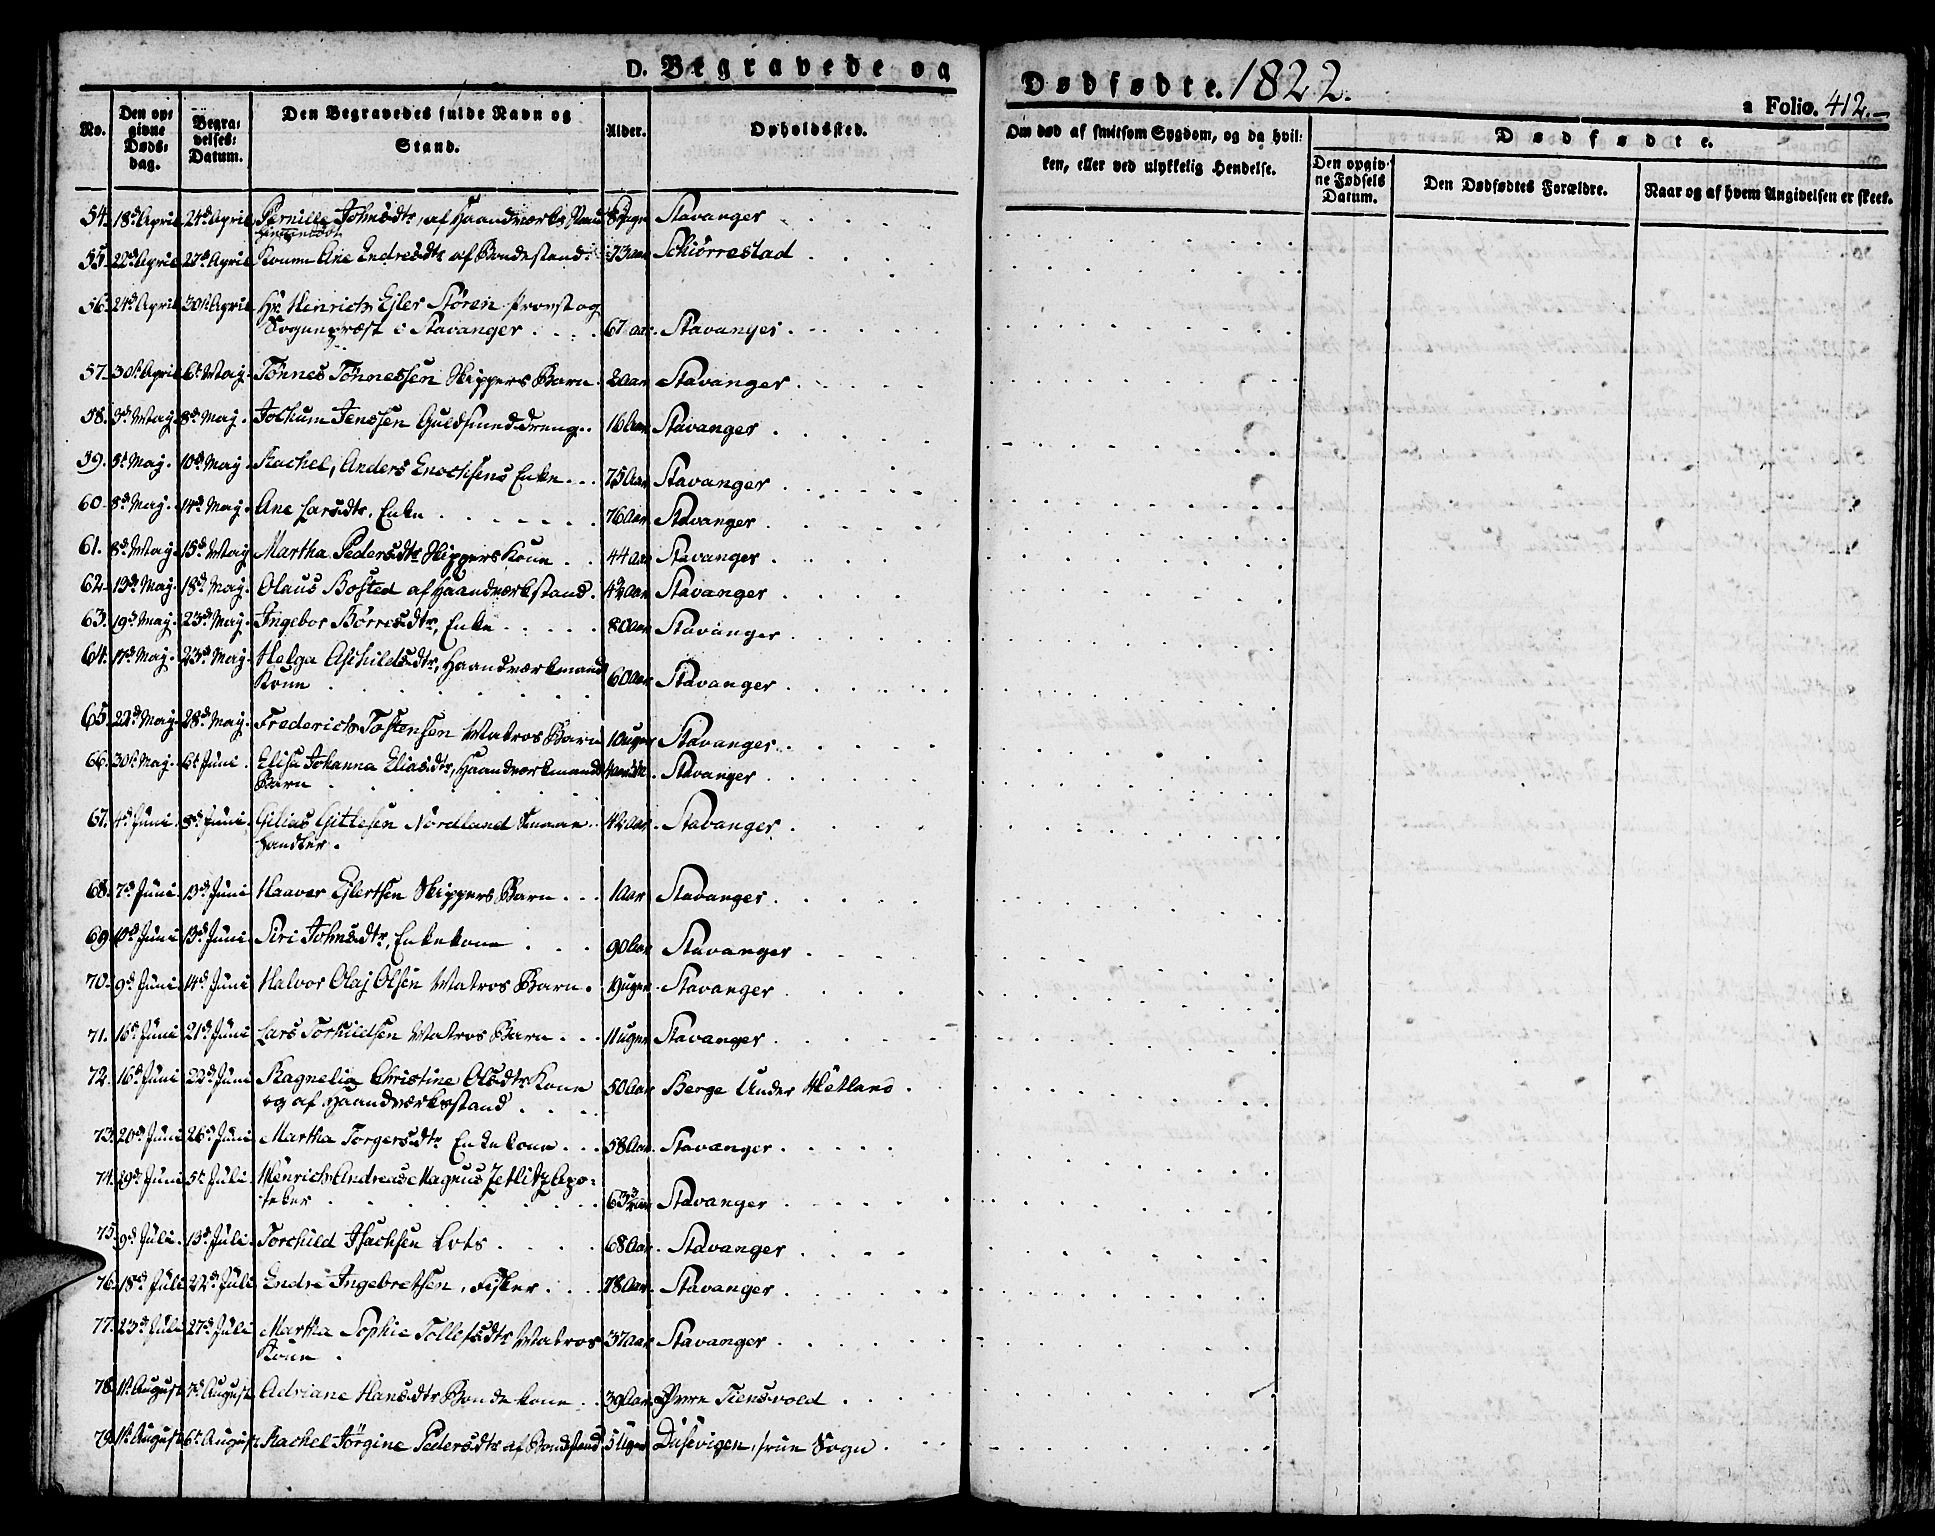 D. Begravede og
Dødfødte. 1822.
a Folio. 412.
No.
Den opgivne Døds-dag.
Begravelses-Datum.
Den Begravedes fulde Navn og Stand.
Alder.
Opholdssted.
Om død af smitsom Sygdom, og da hvilken, eller ved ulykkelig Hendelse.
Dødfødte.
Den opgivne Fødsels Datum.
Den Dødfødtes Forældre.
Naar og af hvem Angivelsen er skeet.
54. 18d April 24d April Pernille Johnsdtr, af Haandværks Stand Stavanger
55. 22d April 27d April Konen Ane Endresdtr af Bondestand. 73 aar Schiörrestad
56. 24d April 30t April Hr. Henrich Ejler Stören Provst og
Sognepræst i Stavanger 67 aar. Stavanger
57. 30t April 6t Maj. Tönnes Tönnessen Skippers Barn 2 Aar Stavanger
58. 3d Maj. 8d Maj. Jochum Jenssen Guldsmeddreng. 16 Aar Stavanger
59. 5t Maj. 10d Maj Rachel, Anders Enochsens Enke 75 Aar Stavanger
60. 8d Maj. 14d Maj. Ane Larsdtr. Enke 76 Aar Stavanger
61. 8d Maj 15d Maj Martha Pedersdtr Skippers Kone 44 Aar Stavanger
62. 13d Maj. 18d Maj. Olaus Bosted af Haandværkstand. 42 Aar Stavanger
63. 19d Maj. 23d Maj. Ingebor Börresdtr, Enke 80 Aar Stavanger
64. 17d Maj. 23d Maj. Helga Aschildsdtr, Haandværkmand
Kone 60 Aar Stavanger
65. 22d Maj. 28d Maj. Frederich Tostensen Matros Barn 10 uger Stavanger
66. 30t Maj. 6t Juni. Elisa Johanna Eliasdtr, Haandværkmands
Barn Stavanger
67. 4d Juni. 8d Juni. Gitlesen Nordland
42 aar Stavanger
68. 7d Juni 13d Juni Haaver Ejlertsen Skippers Barn 1 Aar Stavanger
69. 10d Juni 13d Juni. Siri Johnsdtr, Enkekone 90 Aar Stavanger
70. 9d Juni. 14d Juni Halvor Olaj Olsen Matros Barn. 19 uger Stavanger
71. 16d Juni 21d Juni Lars Torkildsen Matros Barn 11 uger Stavanger
72. 16d Juni 22d Juni Ragnelia Christine Olsdtr Kone
og af Haandværksstand 50 Aar Berge Under Hetland
73. 20d Juni 26d Juni Martha Torgersdtr Enkekone 58 Aar Stavanger
74. 29d Juni 5t Juli. Henrich Andreas Magnus Zetlitz Apo-
teker Stavanger
75. 9d Juli. 13d Juli. Torchild Isachsen Lots 68 Aar. Stavanger
76. 18d Juli 22d Juli Endre Ingebretsen, Fisker 78 Aar Stavanger
77. 23d Juli 27d Juli Martha Sophie Tollefsdtr Matros
Kone 37 Aar Stavanger
78. 1t August 7d August. Adriane Hansdtr Bondekone 39 Aar Övre Tiensvold
79. 1t August 6t August. Rachel Jörgine Pedersdtr af Bondestand 5 Uger Dusevigen, frue Sogn